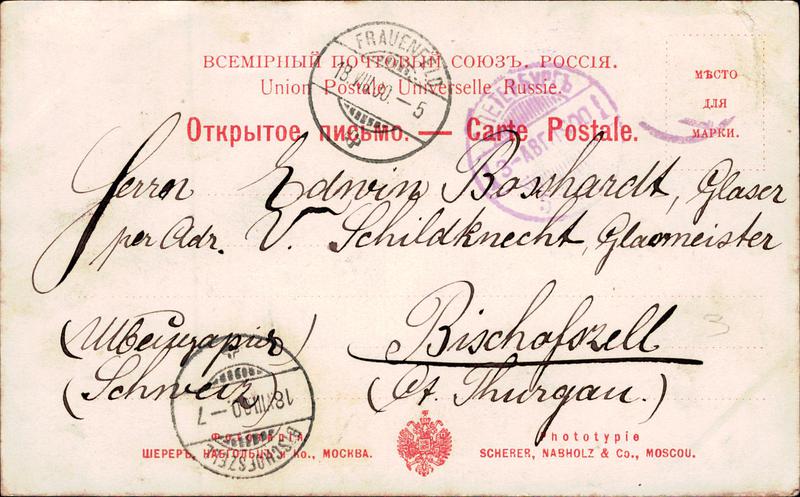 ВСЕМІРНЫЙ ПОЧТОВЫЙ СОЮЗЪ. РОССІЯ.
Union Postale Universelle Russie.
Открытое письмо. — Carte Postale.
МѢСТО
ДЛЯ
МАРКИ.
FRAUENFELD
18.VIII.00.–5
ПЕТЕРБУРГЪ
3-АВГ.1900
Herrn Edwin Bosshardt, Glaser
per Adr. V. Schildknecht, Glasmeister
(Швейцарія) Bischofszell
(Schweiz) (Ct. Thurgau.)
BISCHOFSZELL
18.VIII.00–7
Фототипія
ШЕРЕРЪ, НАБГОЛЬЦЪ и Ко., МОСКВА.
Phototypie
SCHERER, NABHOLZ & Co., MOSCOU.
3